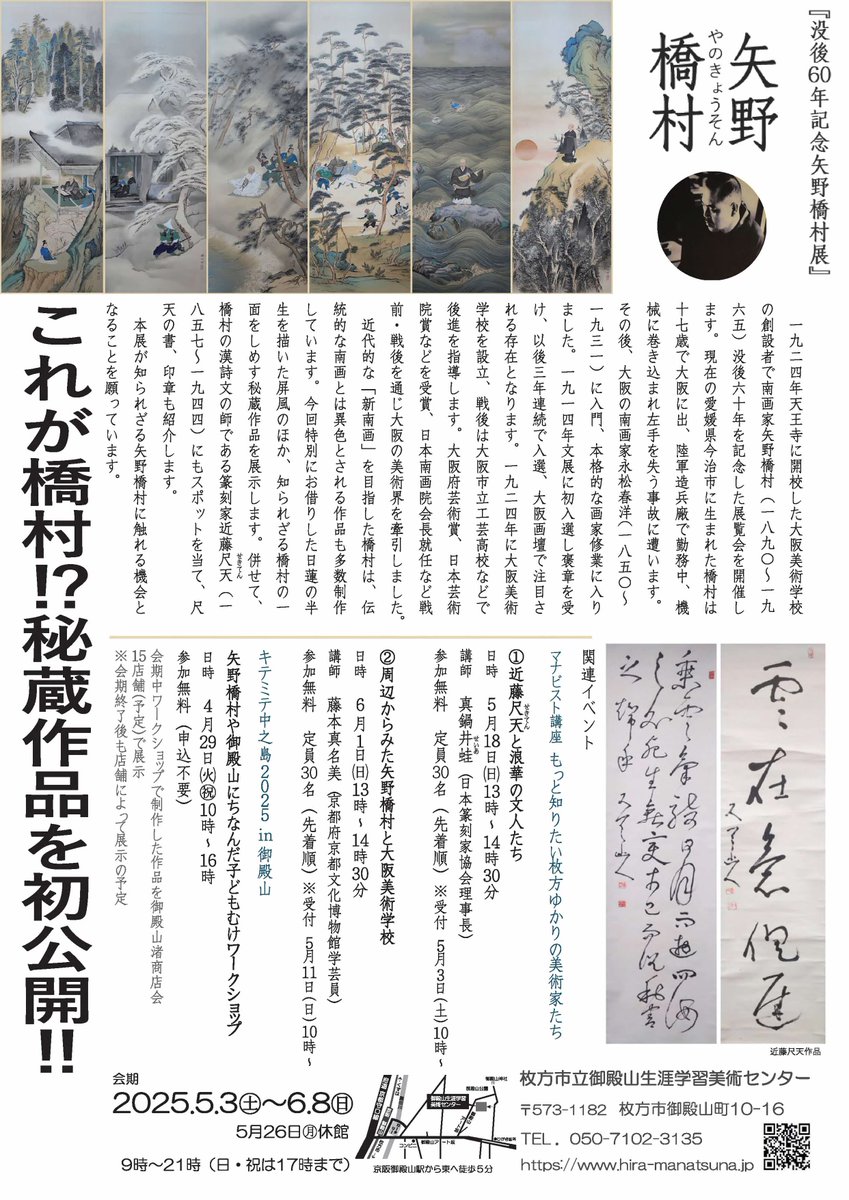 『没後60年記念矢野橋村展』
矢野
橋村
やのきょうそん
一九二四年天王寺に開校した大阪美術学校
の創設者で南画家矢野橋村（一八九〇〜一九
六五）没後六十年を記念した展覧会を開催し
ます。現在の愛媛県今治市に生まれた橋村は
十七歳で大阪に出、陸軍造兵廠で勤務中、機
械に巻き込まれ左手を失う事故に遭います。
その後、大阪の南画家永松春洋（一八五〇〜
一九三一）に入門、本格的な画家修業に入り
ました。一九一四年文展に初入選し褒章を受
け、以後三年連続で入選、大阪画壇で注目さ
れる存在となります。一九二四年に大阪美術
学校を設立、戦後は大阪市立工芸高校などで
後進を指導します。大阪府芸術賞、日本芸術
院賞などを受賞、日本南画院会長就任など戦
前・戦後を通じ大阪の美術界を牽引しました。
近代的な「新南画」を目指した橋村は、伝
統的な南画とは異色とされる作品も多数制作
しています。今回特別にお借りした日蓮の半
生を描いた屏風のほか、知られざる橋村の一
面をしめす秘蔵作品を展示します。併せて、
橋村の漢詩文の師である篆刻家近藤尺天（一
せきてん
八五七〜一九四四）にもスポットを当て、尺
天の書、印章も紹介します。
本展が知られざる矢野橋村に触れる機会と
なることを願っています。
これが橋村!?秘蔵作品を初公開!!
関連イベント
マナビスト講座 もっと知りたい枚方ゆかりの美術家たち
①近藤尺天と浪華の文人たち
せきてん
日時 5月18日(日)13時〜14時30分
講師 真鍋井蛙（日本篆刻家協会理事長）
せいあ
参加無料 定員30名（先着順）※受付 5月3日(土)10時〜
②周辺からみた矢野橋村と大阪美術学校
日時 6月1日(日)13時〜14時30分
講師 藤本真名美（京都府京都文化博物館学芸員）
参加無料 定員30名（先着順）※受付 5月11日(日)10時〜
キテミテ中之島2025 in 御殿山
矢野橋村や御殿山にちなんだ子どもむけワークショップ
日時 4月29日(火)㊗10時〜16時
参加無料（申込不要）
会期中ワークショップで制作した作品を御殿山渚商店会
15店舗(予定)で展示
※会期終了後も店舗によって展示の予定
近藤尺天作品
会期
2025.5.3㊏〜6.8㊐
5月26日㊊休館
9時〜21時（日・祝は17時まで）
御殿山神社
御殿山公園
御殿山生涯学習
美術センター
コンビニ
御殿山アート坂
京阪御殿山駅から東へ徒歩5分
枚方市立御殿山生涯学習美術センター
〒573-1182 枚方市御殿山町10-16
TEL. 050-7102-3135
https://www.hira-manatsuna.jp